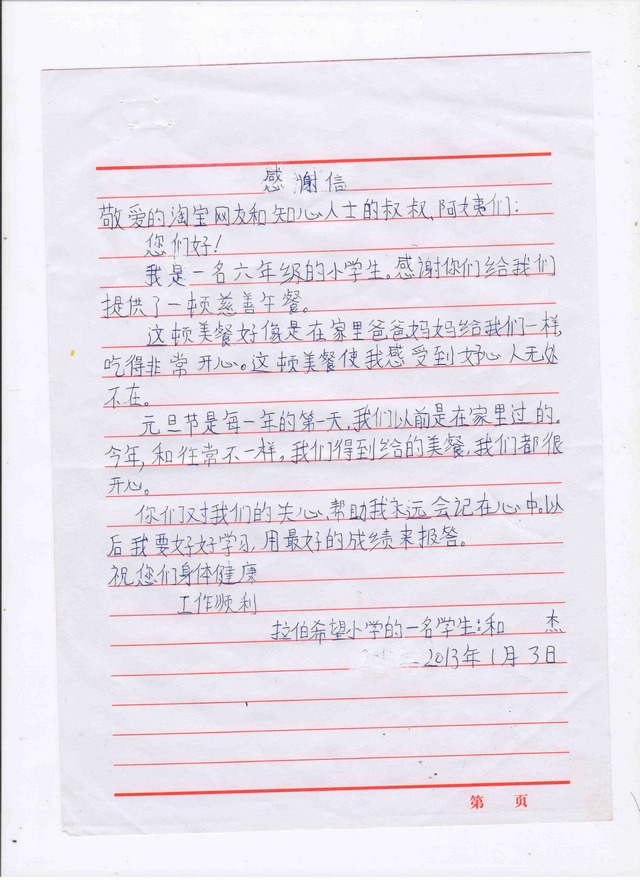 感谢信
敬爱的淘宝网友和知心人士的叔叔、阿姨们:
您们好!
我是一名六年级的小学生。感谢你们给我们
提供了一顿慈善午餐。
这顿美餐好像是在家里爸爸妈妈给我们一样,
吃得非常开心。这顿美餐使我感受到好心人无处
不在。
元旦节是每一年的第一天,我们以前是在家里过的.
今年,和往常不一样,我们得到给的美餐,我们都很
开心。
你们对我们的关心、帮助我永远会记在心中。以
后我要好好学习,用最好的成绩来报答。
祝您们身体健康
工作顺利
拉伯希望小学的一名学生:和 杰
2013年1月3日
第 页